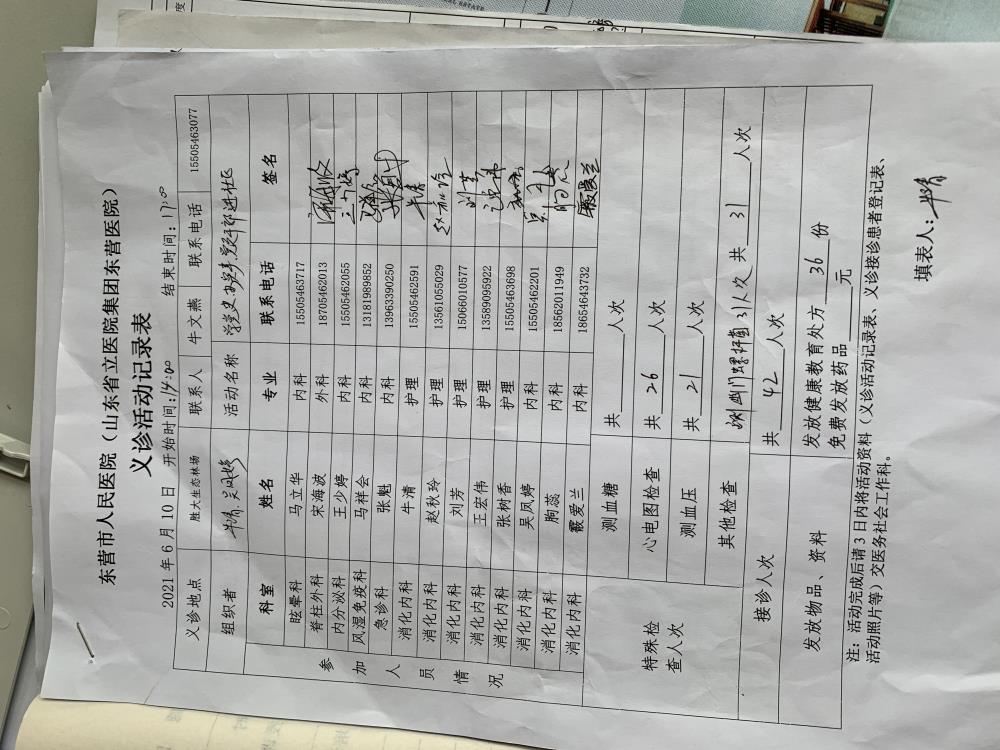 东营市人民医院（山东省立医院集团东营医院）
义诊活动记录表
2021 年 6 月 10 日 开始时间:14:00 结束时间: 17:00
义诊地点 胜大生态林场 联系人 牛文燕 联系电话 15505463077
组织者 牛清 吴凤婷 活动名称 学党史 办实事 健康进社区
参加人员情况
科室 姓名 专业 联系电话 签名
眩晕科 马立华 内科 15505463717
脊柱外科 宋海波 外科 18705462013 宋海波
内分泌科 王少婷 内科 15505462055 王少婷
风湿免疫科 马祥会 内科 13181989852
急诊科 张魁 内科 13963390250
消化内科 牛清 护理 15505462591 牛清
消化内科 赵秋玲 护理 13561055029 赵秋玲
消化内科 刘芳 护理 15066010577 刘芳
消化内科 王宏伟 护理 13589095922
消化内科 张树香 护理 15505463698
消化内科 吴凤婷 内科 15505462201 吴凤婷
消化内科 胸蕊 内科 18562011949
消化内科 霰爱兰 内科 18654643732 霰爱兰
特殊检查人次
测血糖 共 人次
心电图检查 共 26 人次
测血压 共 21 人次
其他检查 测幽门螺杆菌31人次 共 31 人次
接诊人次 共 42 人次
发放物品、资料 发放健康教育处方 36 份
免费发放药品 元
注: 活动完成后请 3 日内将活动资料（义诊活动记录表、义诊接诊患者登记表、
活动照片等）交医务社会工作科。
填表人: 牛清